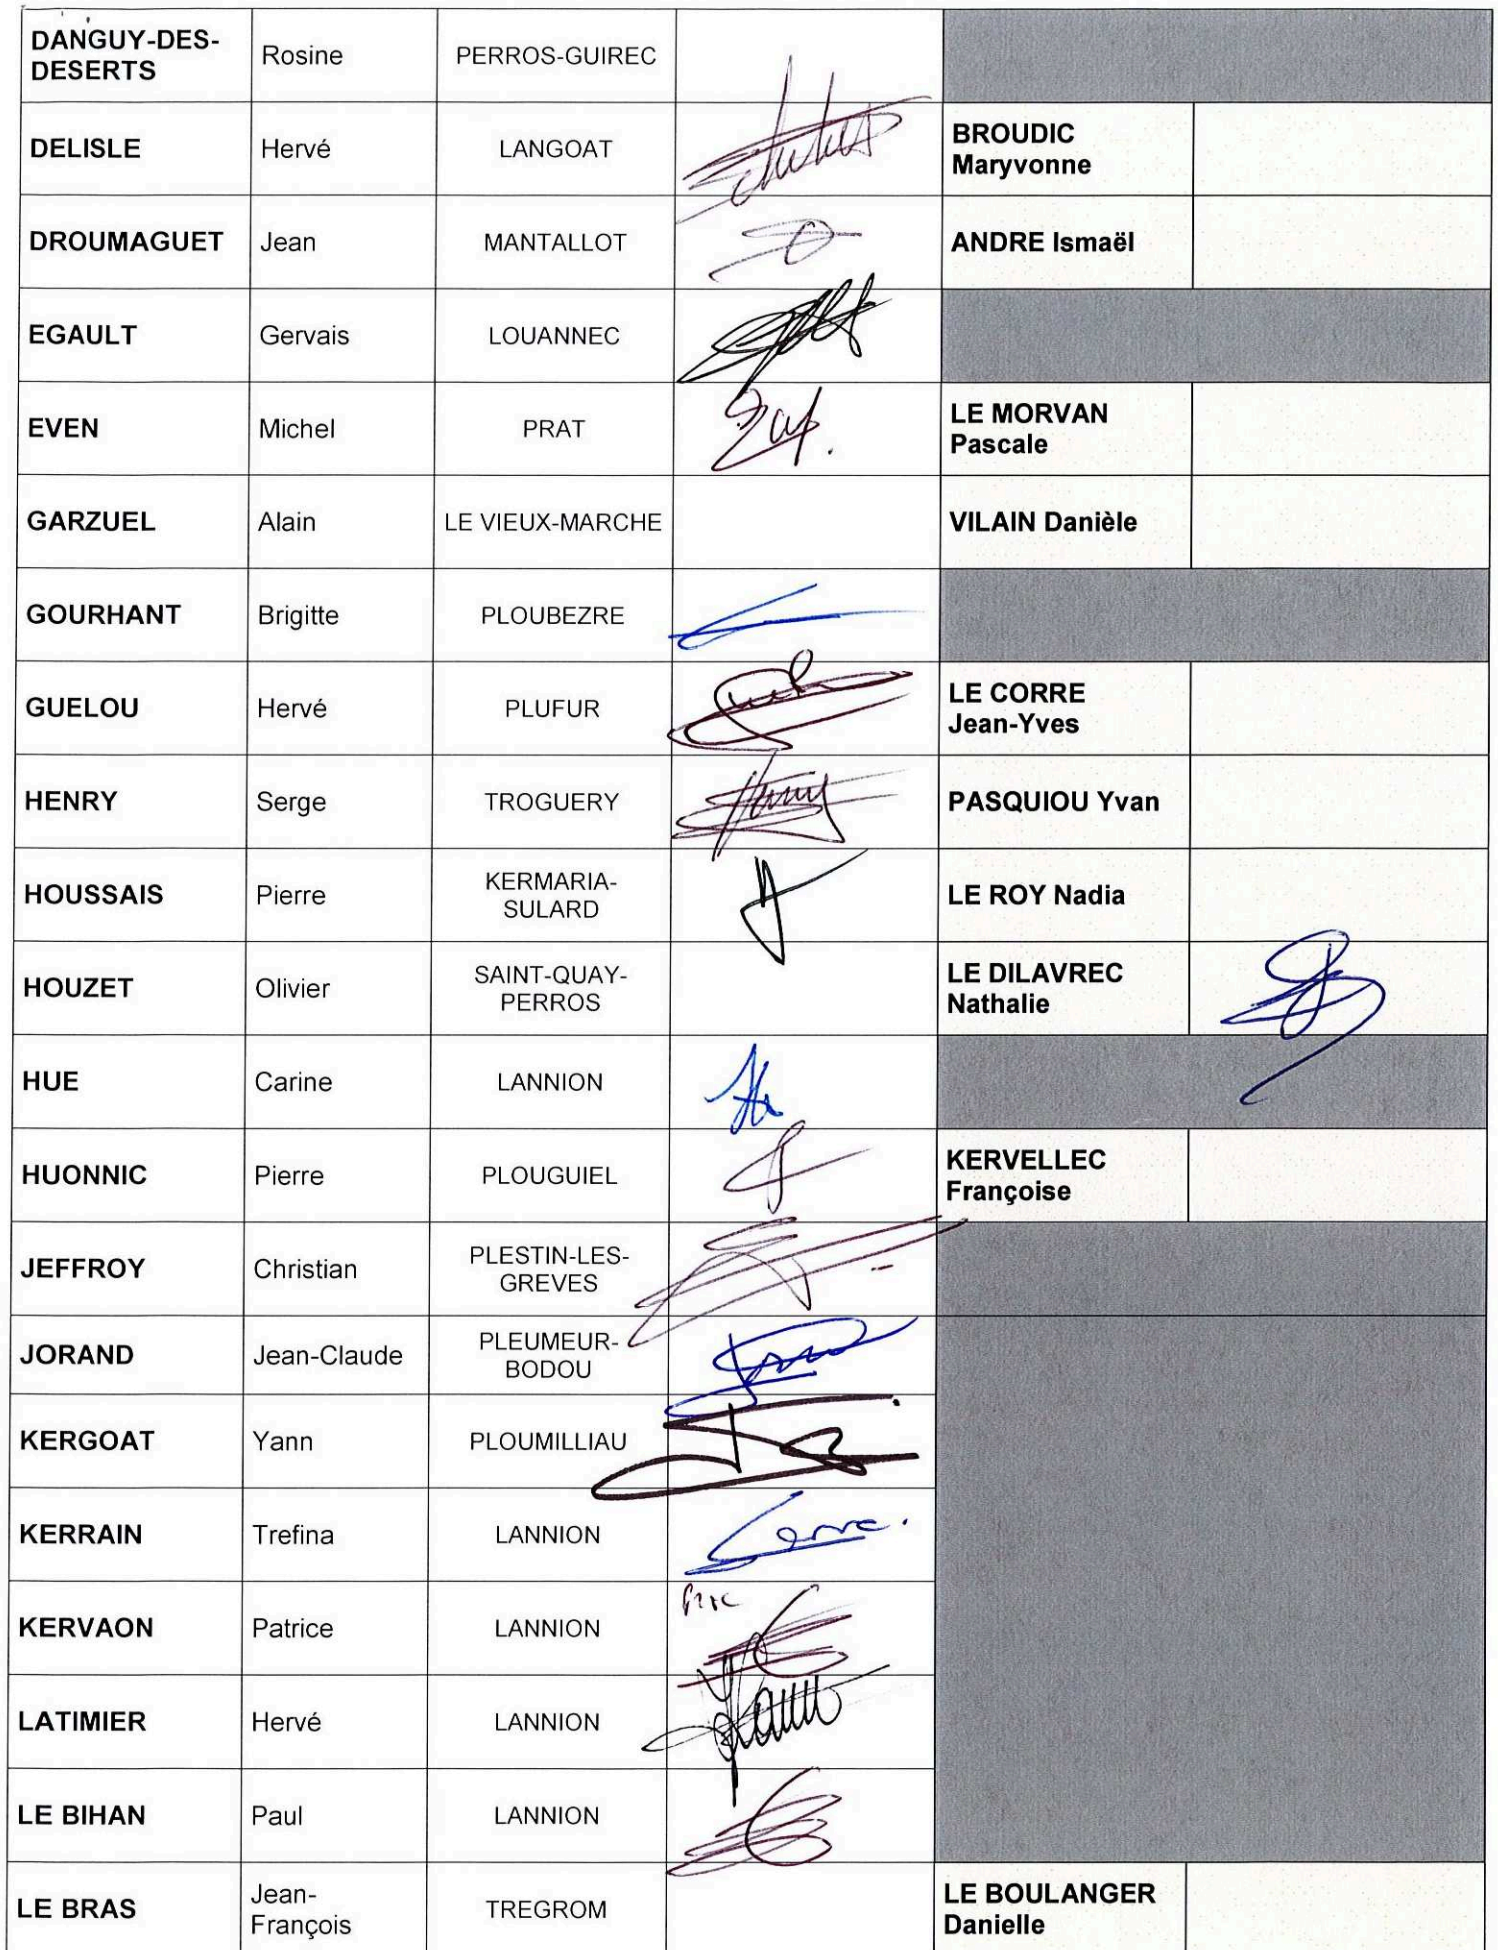 DANGUY-DES-
DESERTS
Rosine
PERROS-GUIREC
DELISLE
Hervé
LANGOAT
BROUDIC
Maryvonne
DROUMAGUET
Jean
MANTALLOT
ANDRE Ismaël
EGAULT
Gervais
LOUANNEC
EVEN
Michel
PRAT
LE MORVAN
Pascale
GARZUEL
Alain
LE VIEUX-MARCHE
VILAIN Danièle
GOURHANT
Brigitte
PLOUBEZRE
GUELOU
Hervé
PLUFUR
LE CORRE
Jean-Yves
HENRY
Serge
TROGUERY
PASQUIOU Yvan
HOUSSAIS
Pierre
KERMARIA-
SULARD
LE ROY Nadia
HOUZET
Olivier
SAINT-QUAY-
PERROS
LE DILAVREC
Nathalie
HUE
Carine
LANNION
HUONNIC
Pierre
PLOUGUIEL
KERVELLEC
Françoise
JEFFROY
Christian
PLESTIN-LES-
GREVES
JORAND
Jean-Claude
PLEUMEUR-
BODOU
KERGOAT
Yann
PLOUMILLIAU
KERRAIN
Trefina
LANNION
KERVAON
Patrice
LANNION
LATIMIER
Hervé
LANNION
LE BIHAN
Paul
LANNION
LE BRAS
Jean-
François
TREGROM
LE BOULANGER
Danielle